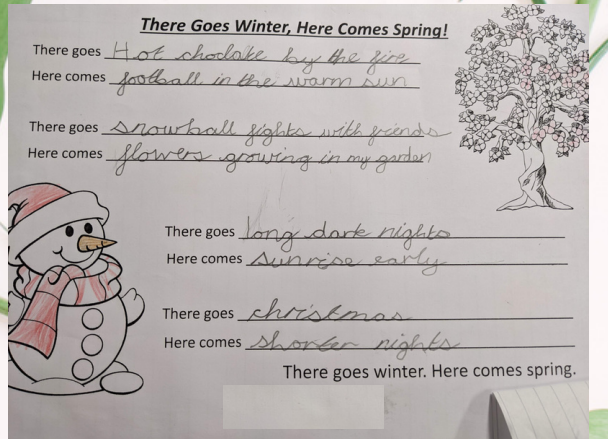 There Goes Winter, Here Comes Spring!
There goes Hot choclate by the fire
Here comes football in the warm sun
There goes snowball fights with friends
Here comes flowers growing in my garden
There goes long dark nights
Here comes sunrise early
There goes christmas
Here comes shorter nights
There goes winter. Here comes spring.